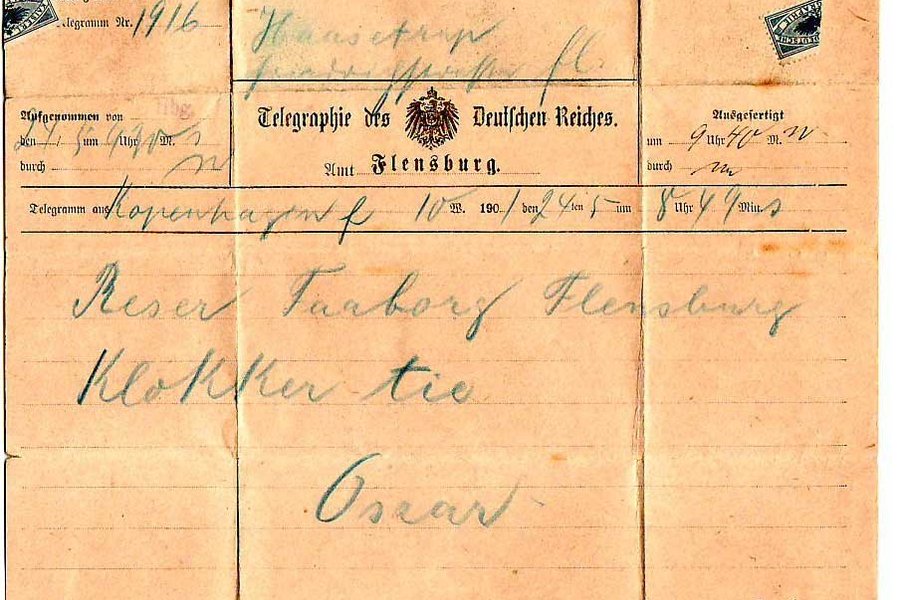 Telegramm Nr. 1916
Haasetrup
fl.
Telegraphie des Deutschen Reiches.
Amt Flensburg.
Aufgenommen von
den 24. 5 um Uhr M.
durch
Ausgefertigt
um 9 Uhr 40 M.
durch
Telegramm aus Kopenhagen 10 W. 190 1 den 24 ten 5 um 8 Uhr 49 Min. s
Reser Faaborg Flensburg
Klokker tie
Oscar